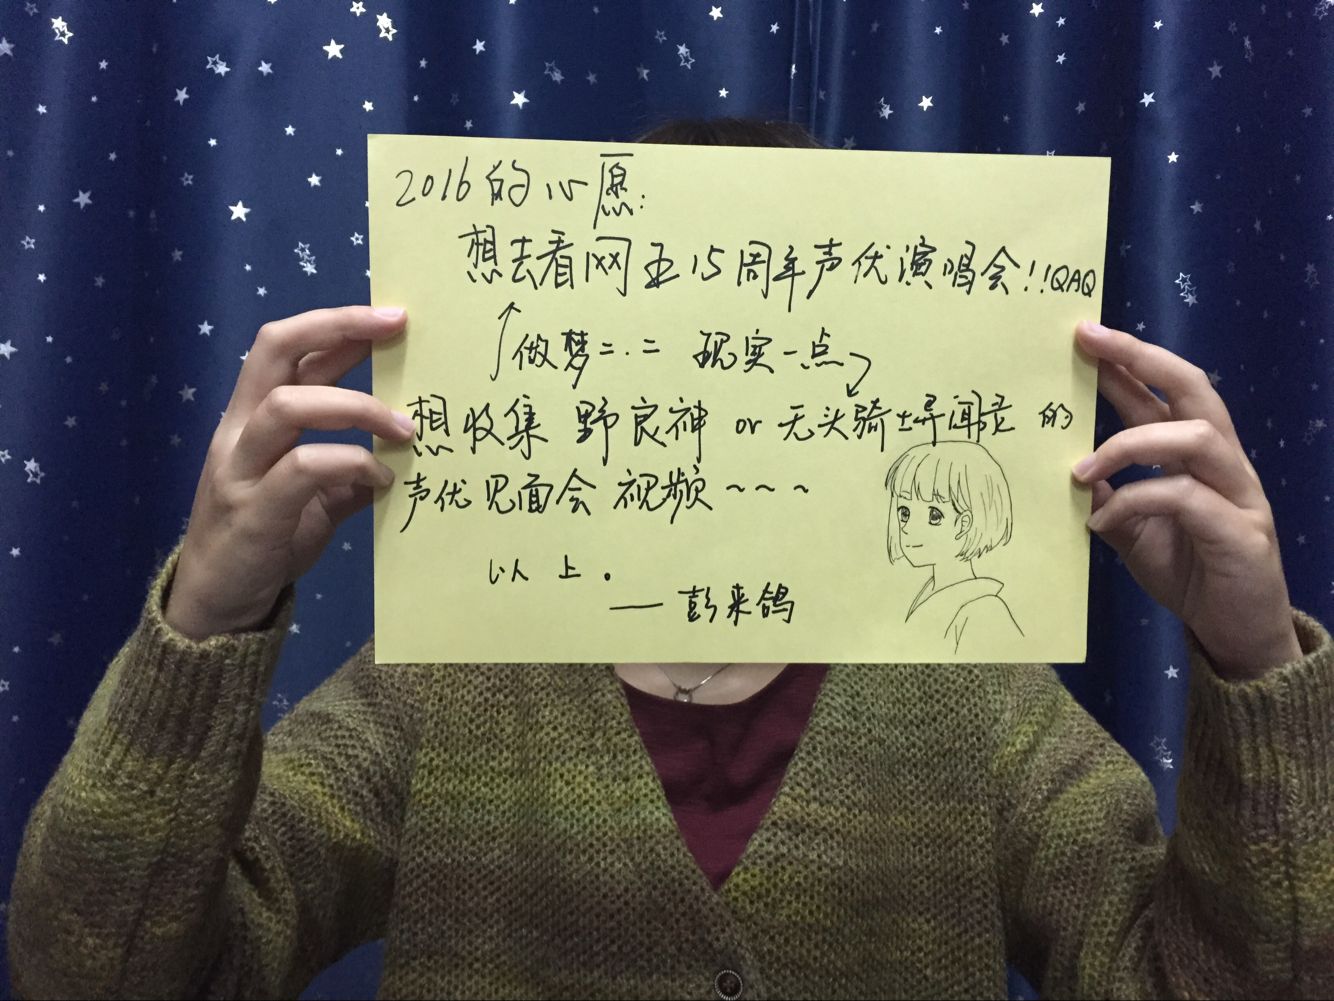 2016的心愿：
想去看网王15周年声优演唱会!!QAQ
做梦=.= 现实一点
想收集 野良神 or 无头骑士异闻录 的
声优见面会 视频~~~
以上.
——彭来鸽